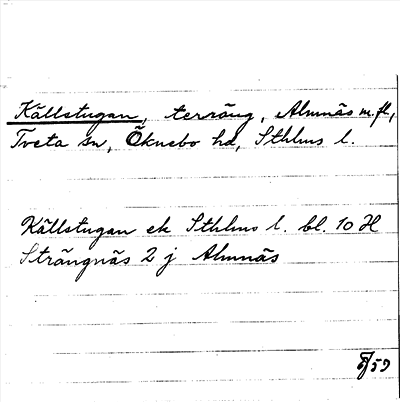 Källstugan, terräng, Almnäs m.fl,
Tveta sn, Öknebo hd, Sthlms l.
Källstugan ek Sthlms l. bl. 10 H
Strängnäs 2 j Almnäs
59